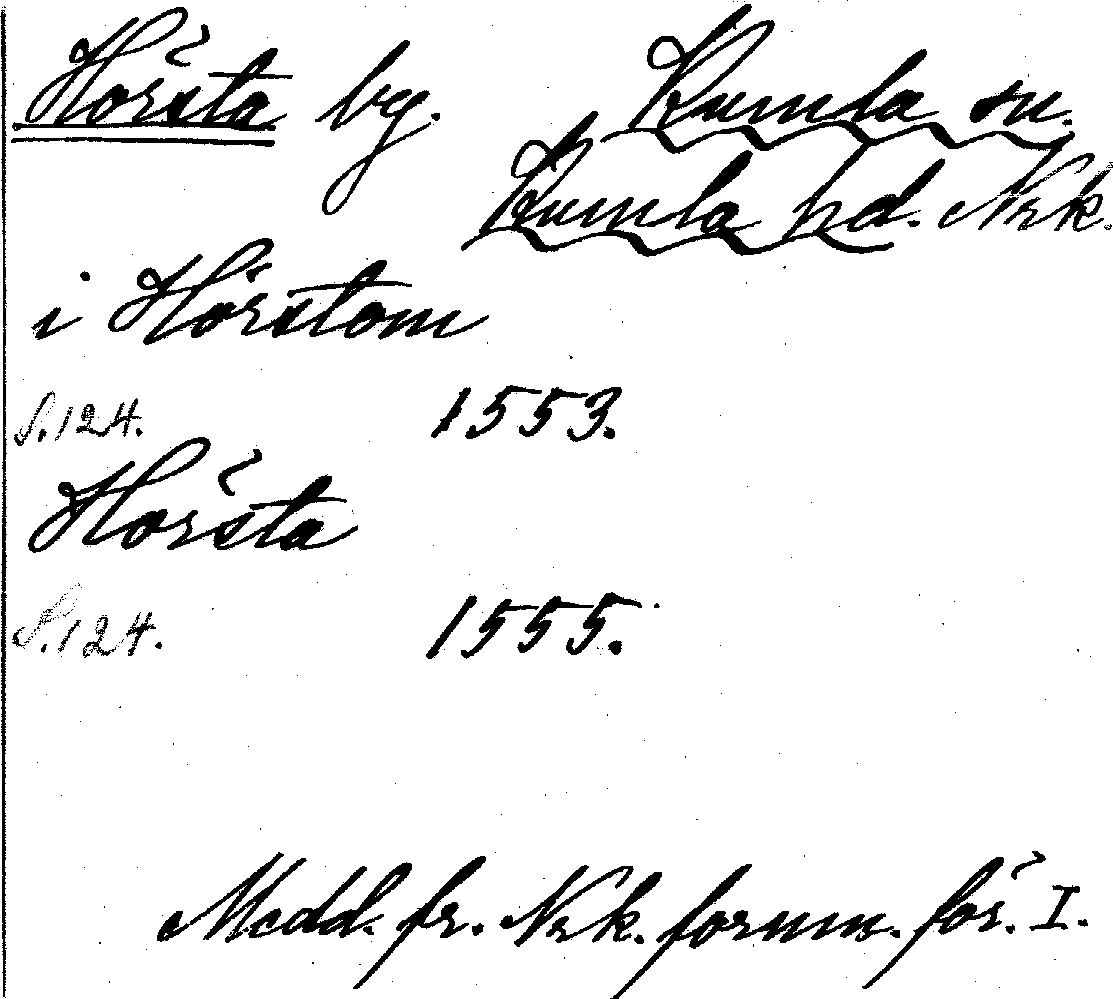 Hörsta by. Kumla sn.
Kumla hd. Nrk.
i Hörstom
S. 124. 1553.
Hörsta
S. 124. 1555.
Medd. fr. Nrk. fornm. för. I.